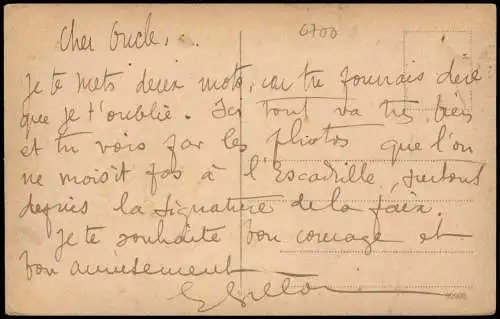 Cher Oncle,..
6700
Je te mets deux mots, car tu pourrais dire
que je t'oublie. Ici tout va très bien
et tu vois par les photos que l'on
ne moisit pas à l'Escadrille, surtout
depuis la signature de la paix.
Je te souhaite bon courage et
bon amusement